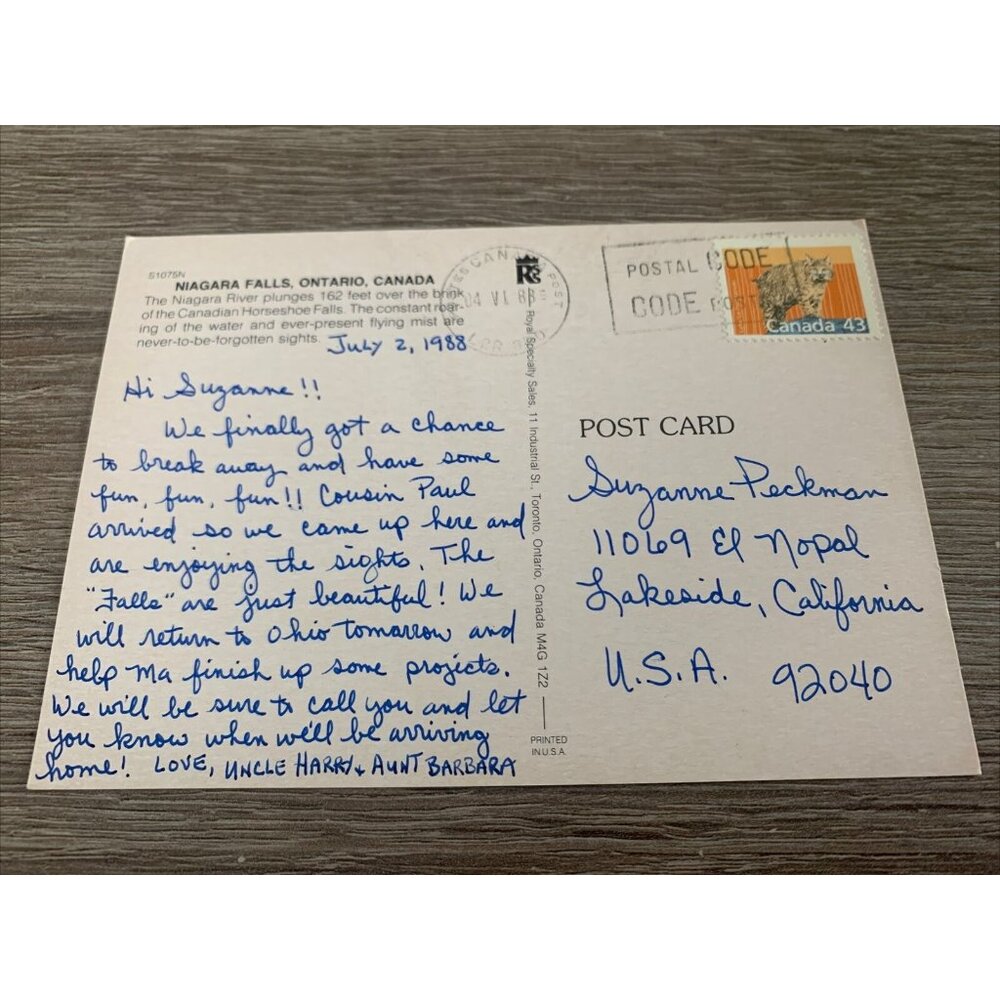 51075N
NIAGARA FALLS, ONTARIO, CANADA
The Niagara River plunges 162 feet over the brink
of the Canadian Horseshoe Falls. The constant roar-
ing of the water and ever-present flying mist are
never-to-be-forgotten sights.
July 2, 1988
Hi Suzanne!!
We finally got a chance
to break away and have some
fun, fun, fun!! Cousin Paul
arrived so we came up here and
are enjoying the sights. The
"Falls" are just beautiful! We
will return to Ohio tomorrow and
help Ma finish up some projects.
We will be sure to call you and let
you know when we'll be arriving
home! LOVE, UNCLE HARRY + AUNT BARBARA
Royal Specialty Sales, 11 Industrial St., Toronto, Ontario, Canada M4G 1Z2
PRINTED
IN U.S.A.
CANADA
POST
04 VI 88
POSTAL CODE
CODE POST
Canada 43
POST CARD
Suzanne Peckman
11069 El Nopal
Lakeside, California
U.S.A. 92040